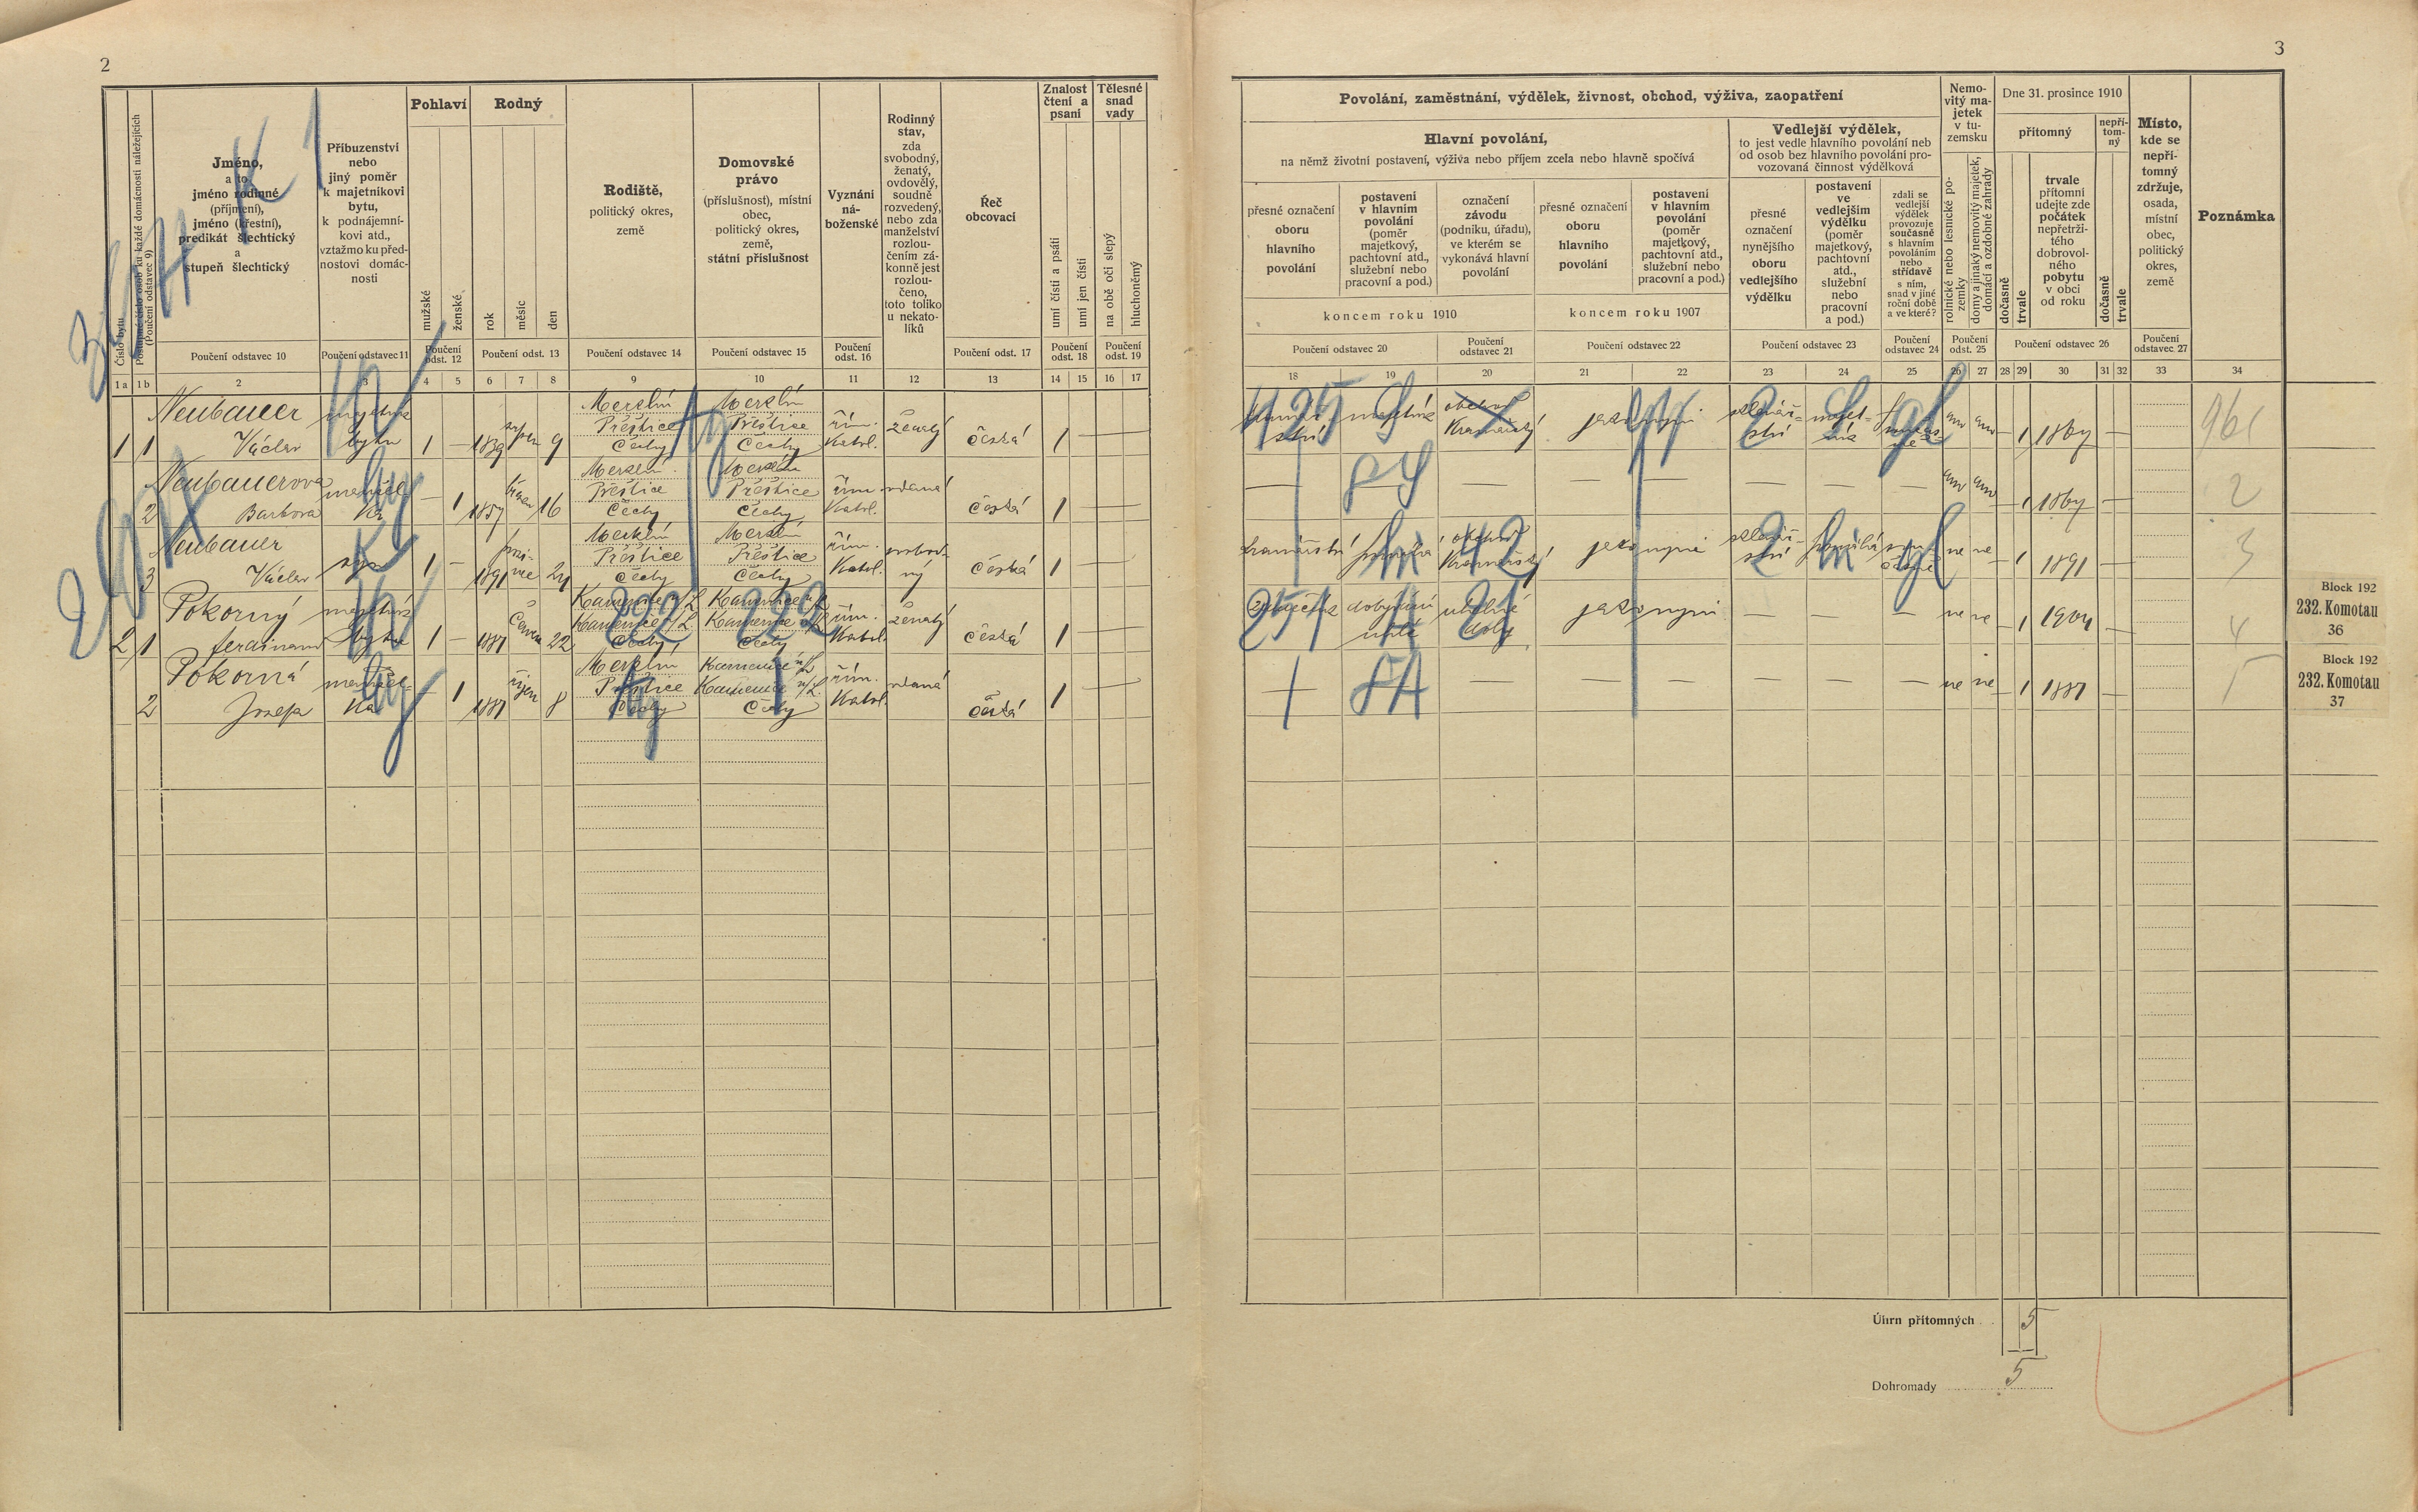 2
Číslo bytu
Postupné číslo osob ku každé domácnosti náležejících
(Poučení odstavec 9)
Jméno,
a to
jméno rodinné
(příjmení),
jméno (křestní),
predikát šlechtický
a
stupeň šlechtický
Poučení odstavec 10
Příbuzenství
nebo
jiný poměr
k majetníkovi
bytu,
k podnájemní-
kovi atd.,
vztažmo ku před-
nostovi domác-
nosti
Poučení odstavec 11
Pohlaví
mužské
ženské
Poučení
odst. 12
Rodný
rok
měsíc
den
Poučení odst. 13
Rodiště,
politický okres,
země
Poučení odstavec 14
Domovské
právo
(příslušnost), místní
obec,
politický okres,
země,
státní příslušnost
Poučení odstavec 15
Vyznání
ná-
boženské
Poučení
odst. 16
Rodinný
stav,
zda
svobodný,
ženatý,
ovdovělý,
soudně
rozvedený,
nebo zda
manželství
rozlou-
čením zá-
konně jest
rozlou-
čeno,
toto toliko
u nekato-
líků
Řeč
obcovací
Poučení odst. 17
Znalost
čtení a
psaní
umí čísti a psáti
umí jen čísti
Poučení
odst. 18
Tělesné
snad
vady
na obě oči slepý
hluchoněmý
Poučení
odst. 19
1a 1b 2 3 4 5 6 7 8 9 10 11 12 13 14 15 16 17
Neubauer majetník Merklín Merklín
Přeštice Přeštice řím. ženatý
1 1 Václav bytu 1 — 1839 srpen 9 Čechy Čechy katol. česká 1 —
Neubauerová manžel- Merklín Merklín
Přeštice Přeštice řím. vdaná
2 Barbora ka — 1 16 Čechy Čechy katol. česká 1 —
Neubauer Merklín Merklín
Přeštice Přeštice řím. svobod-
3 Václav syn 1 — 1891 prosi-nec 24 Čechy Čechy katol. ný česká 1 —
Pokorný majetník Kamenice n/L. Kamenice n/L.
Kamenice n/L. Kamenice n/L. řím. ženatý
2 1 Ferdinand bytu 1 — 1881 červen 22 Čechy Čechy katol. česká 1 —
Pokorná manžel- Merklín Kamenice n/L.
Přeštice Kamenice n/L. řím. vdaná
2 Josefa ka — 1 1881 říjen 8 Čechy Čechy katol. česká 1 —
3
Povolání, zaměstnání, výdělek, živnost, obchod, výživa, zaopatření
Hlavní povolání,
na němž životní postavení, výživa nebo příjem zcela nebo hlavně spočívá
přesné označení
oboru
hlavního
povolání
postavení
v hlavním
povolání
(poměr
majetkový,
pachtovní atd.,
služební nebo
pracovní a pod.)
označení
závodu
(podniku, úřadu),
ve kterém se
vykonává hlavní
povolání
koncem roku 1910
přesné označení
oboru
hlavního
povolání
postavení
v hlavním
povolání
(poměr
majetkový,
pachtovní atd.,
služební nebo
pracovní a pod.)
koncem roku 1907
Poučení odstavec 20
Poučení
odstavec 21
Poučení odstavec 22
Vedlejší výdělek,
to jest vedle hlavního povolání neb
od osob bez hlavního povolání pro-
vozovaná činnost výdělková
přesné
označení
nynějšího
oboru
vedlejšího
výdělku
postavení
ve
vedlejším
výdělku
(poměr
majetkový,
pachtovní
atd.,
služební
nebo
pracovní
a pod.)
zdali se
vedlejší
výdělek
provozuje
současně
s hlavním
povoláním
nebo
střídavě
s ním,
snad v jiné
roční době
a ve které?
Poučení odstavec 23
Poučení
odstavec 24
Nemo-
vitý ma-
jetek
v tu-
zemsku
rolnické nebo lesnické po-
zemky
domy a jinaký nemovitý majetek,
domácí a ozdobné zahrady
Poučení
odst. 25
Dne 31. prosince 1910
přítomný
dočasně
trvale
trvale
přítomní
udejte zde
počátek
nepřetrži-
tého
dobrovol-
ného
pobytu
v obci
od roku
nepří-
tom-
ný
dočasně
trvale
Poučení odstavec 26
Místo,
kde se
nepří-
tomný
zdržuje,
osada,
místní
obec,
politický
okres,
země
Poučení
odstavec 27
Poznámka
18 19 20 21 22 23 24 25 26 27 28 29 30 31 32 33 34
majetník obchod jako nyní sklenář- majet-
ství ník ano ano — 1 1867 —
— — — — — — — ano ano — 1 1867 — 2
kramářství obchod jako nyní sklenář-
ství ne ne — 1 1891 — 3
jako nyní — — — ne ne — 1 1904 — 4
— — — — — — — ne ne — 1 1881 — 5
Block 192
232. Komotau
36
Block 192
232. Komotau
37
Úhrn přítomných 5
Dohromady 5